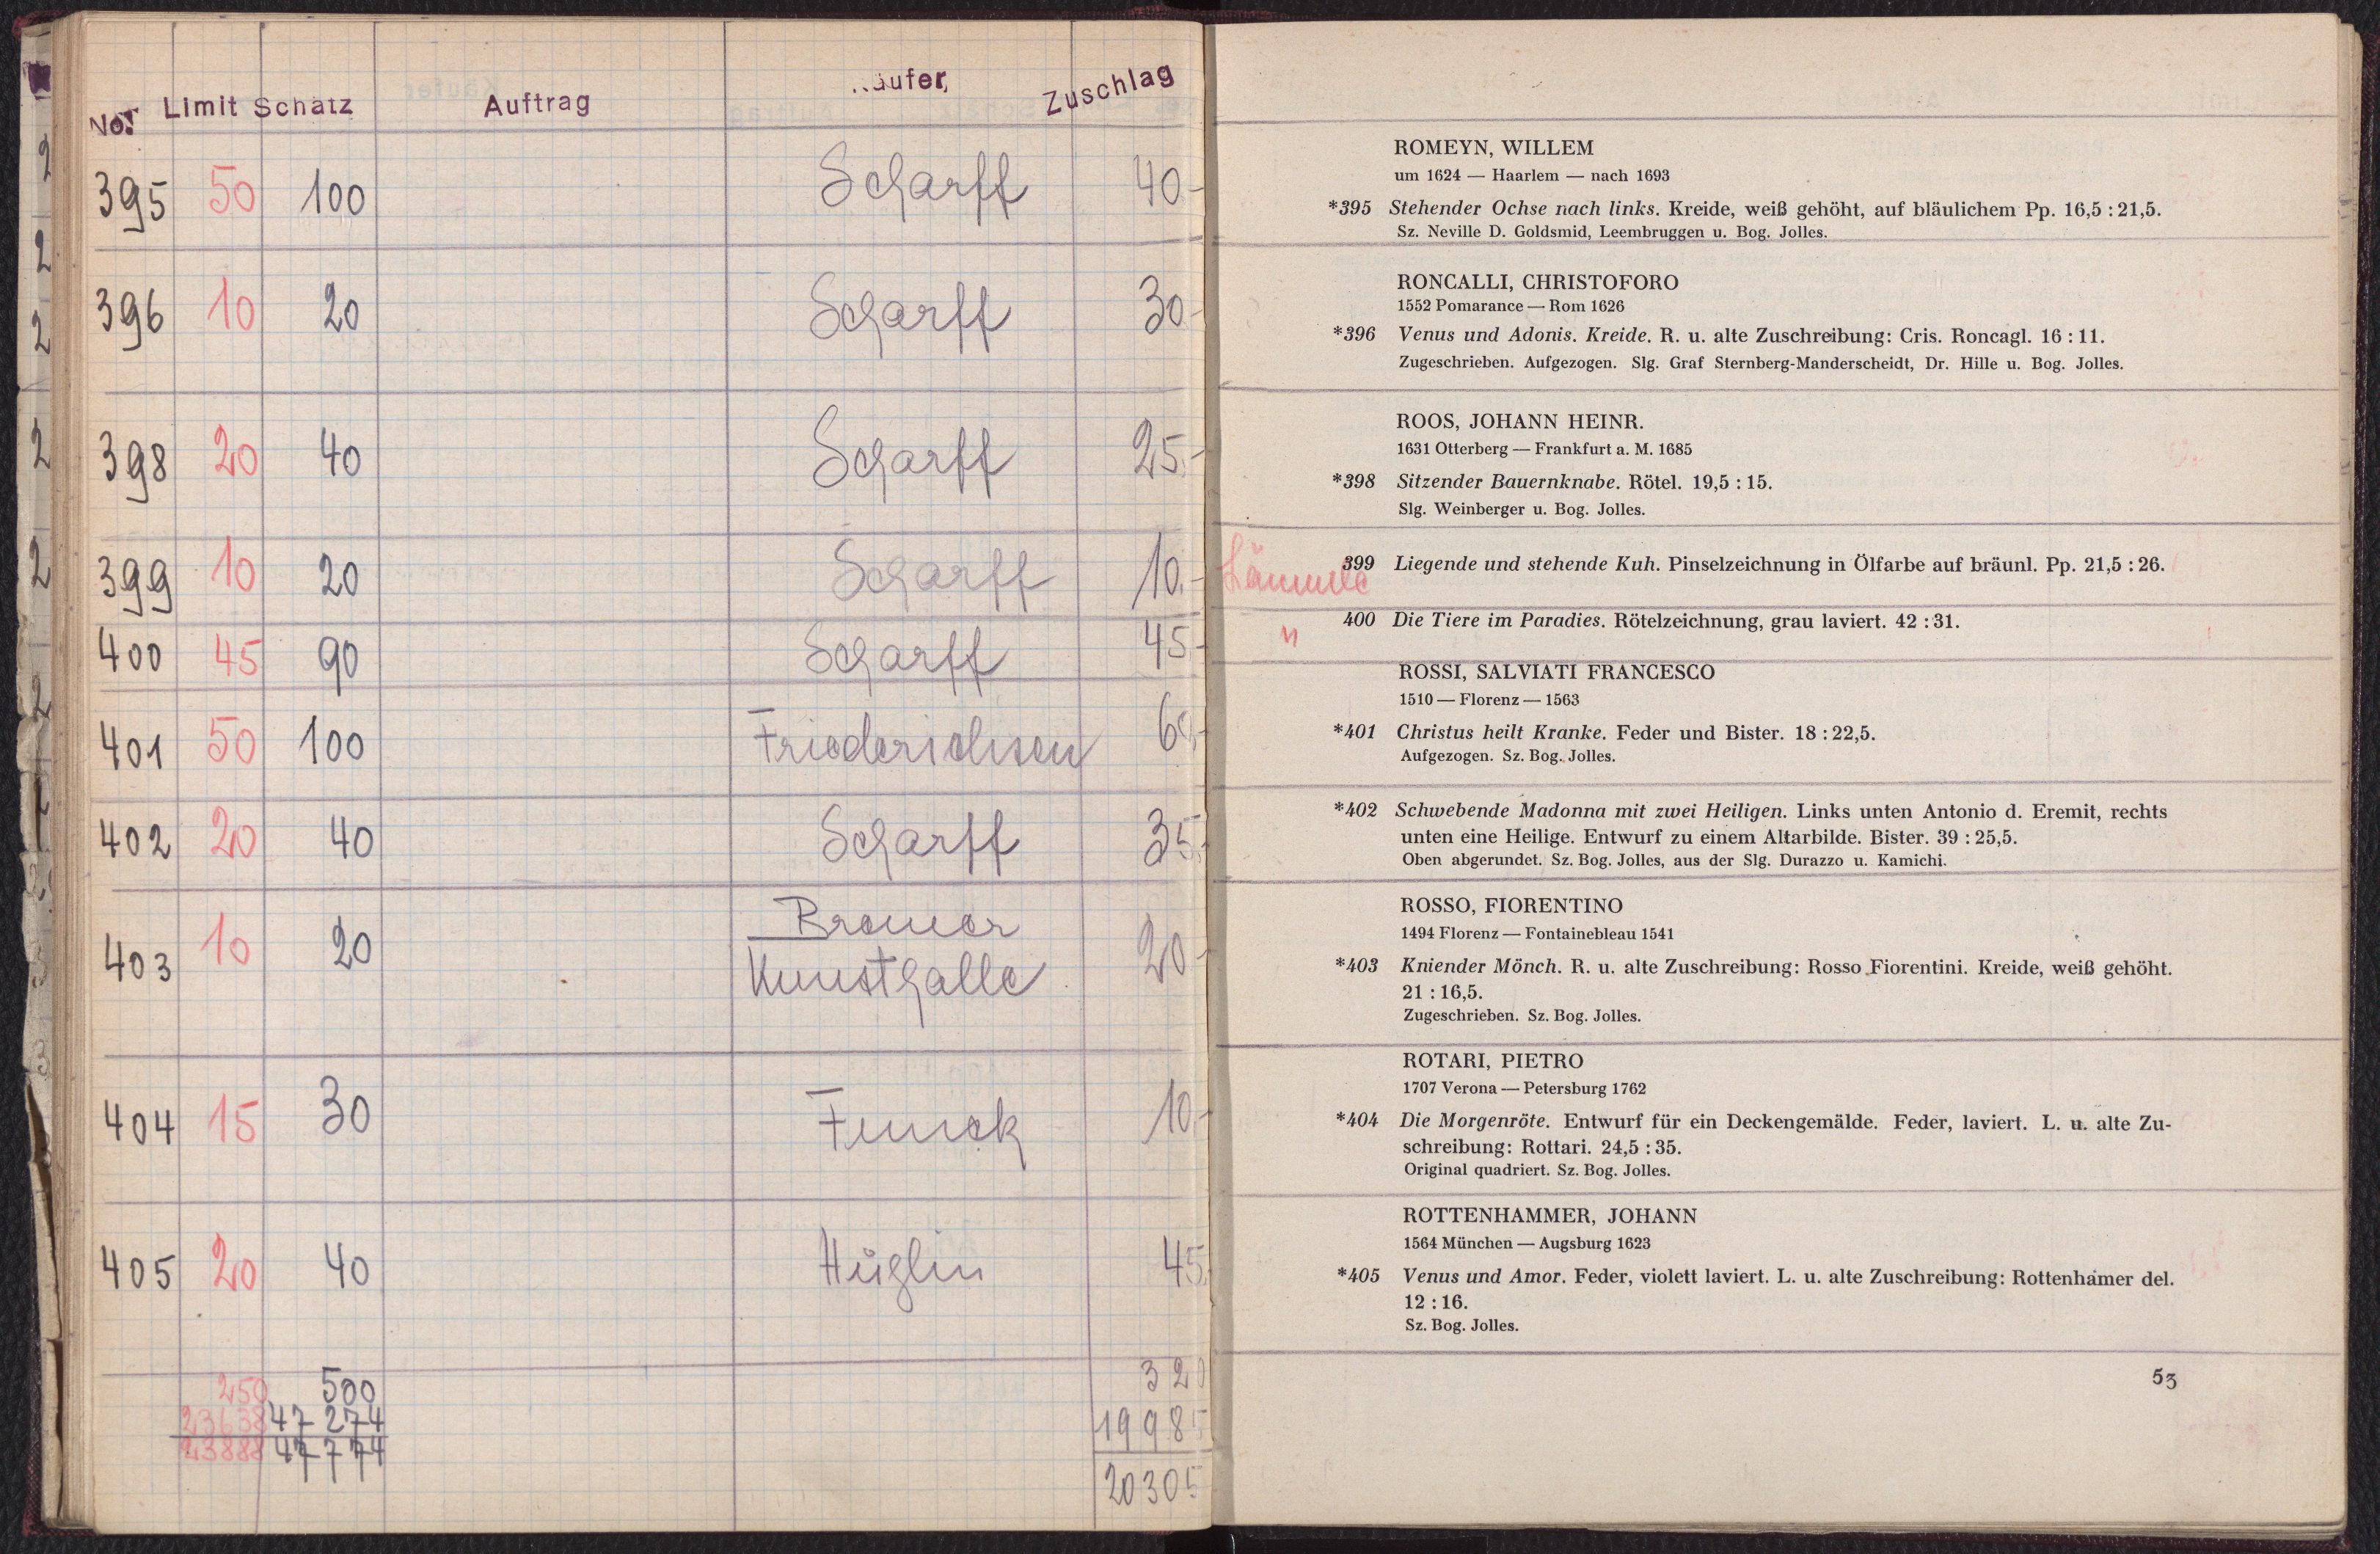 No. Limit Schätz Auftrag Käufer, Zuschlag
395 50 100 Scharff 40.-
396 10 20 Scharff 30.-
398 20 40 Scharff 25.-
399 10 20 Scharff 10.-
400 45 90 Scharff 45.-
401 50 100 Friederichsen 60.-
402 20 40 Scharff 35.-
403 10 20 Bremer 20.-
Kunsthalle
404 15 30 Funck 10.-
405 20 40 Hüglin 45.
250 500 320
23638 47 274 19985
23888 47 774 20305
ROMEYN, WILLEM
um 1624 — Haarlem — nach 1693
*395 Stehender Ochse nach links. Kreide, weiß gehöht, auf bläulichem Pp. 16,5 : 21,5.
Sz. Neville D. Goldsmid, Leembruggen u. Bog. Jolles.
RONCALLI, CHRISTOFORO
1552 Pomarance — Rom 1626
*396 Venus und Adonis. Kreide. R. u. alte Zuschreibung: Cris. Roncagl. 16 : 11.
Zugeschrieben. Aufgezogen. Slg. Graf Sternberg-Manderscheidt, Dr. Hille u. Bog. Jolles.
ROOS, JOHANN HEINR.
1631 Otterberg — Frankfurt a. M. 1685
*398 Sitzender Bauernknabe. Rötel. 19,5 : 15.
Slg. Weinberger u. Bog. Jolles.
Lämmle 399 Liegende und stehende Kuh. Pinselzeichnung in Ölfarbe auf bräunl. Pp. 21,5 : 26.
" 400 Die Tiere im Paradies. Rötelzeichnung, grau laviert. 42 : 31.
ROSSI, SALVIATI FRANCESCO
1510 — Florenz — 1563
*401 Christus heilt Kranke. Feder und Bister. 18 : 22,5.
Aufgezogen. Sz. Bog. Jolles.
*402 Schwebende Madonna mit zwei Heiligen. Links unten Antonio d. Eremit, rechts
unten eine Heilige. Entwurf zu einem Altarbilde. Bister. 39 : 25,5.
Oben abgerundet. Sz. Bog. Jolles, aus der Slg. Durazzo u. Kamichi.
ROSSO, FIORENTINO
1494 Florenz — Fontainebleau 1541
*403 Kniender Mönch. R. u. alte Zuschreibung: Rosso Fiorentini. Kreide, weiß gehöht.
21 : 16,5.
Zugeschrieben. Sz. Bog. Jolles.
ROTARI, PIETRO
1707 Verona — Petersburg 1762
*404 Die Morgenröte. Entwurf für ein Deckengemälde. Feder, laviert. L. u. alte Zu-
schreibung: Rottari. 24,5 : 35.
Original quadriert. Sz. Bog. Jolles.
ROTTENHAMMER, JOHANN
1564 München — Augsburg 1623
*405 Venus und Amor. Feder, violett laviert. L. u. alte Zuschreibung: Rottenhamer del.
12 : 16.
Sz. Bog. Jolles.
53